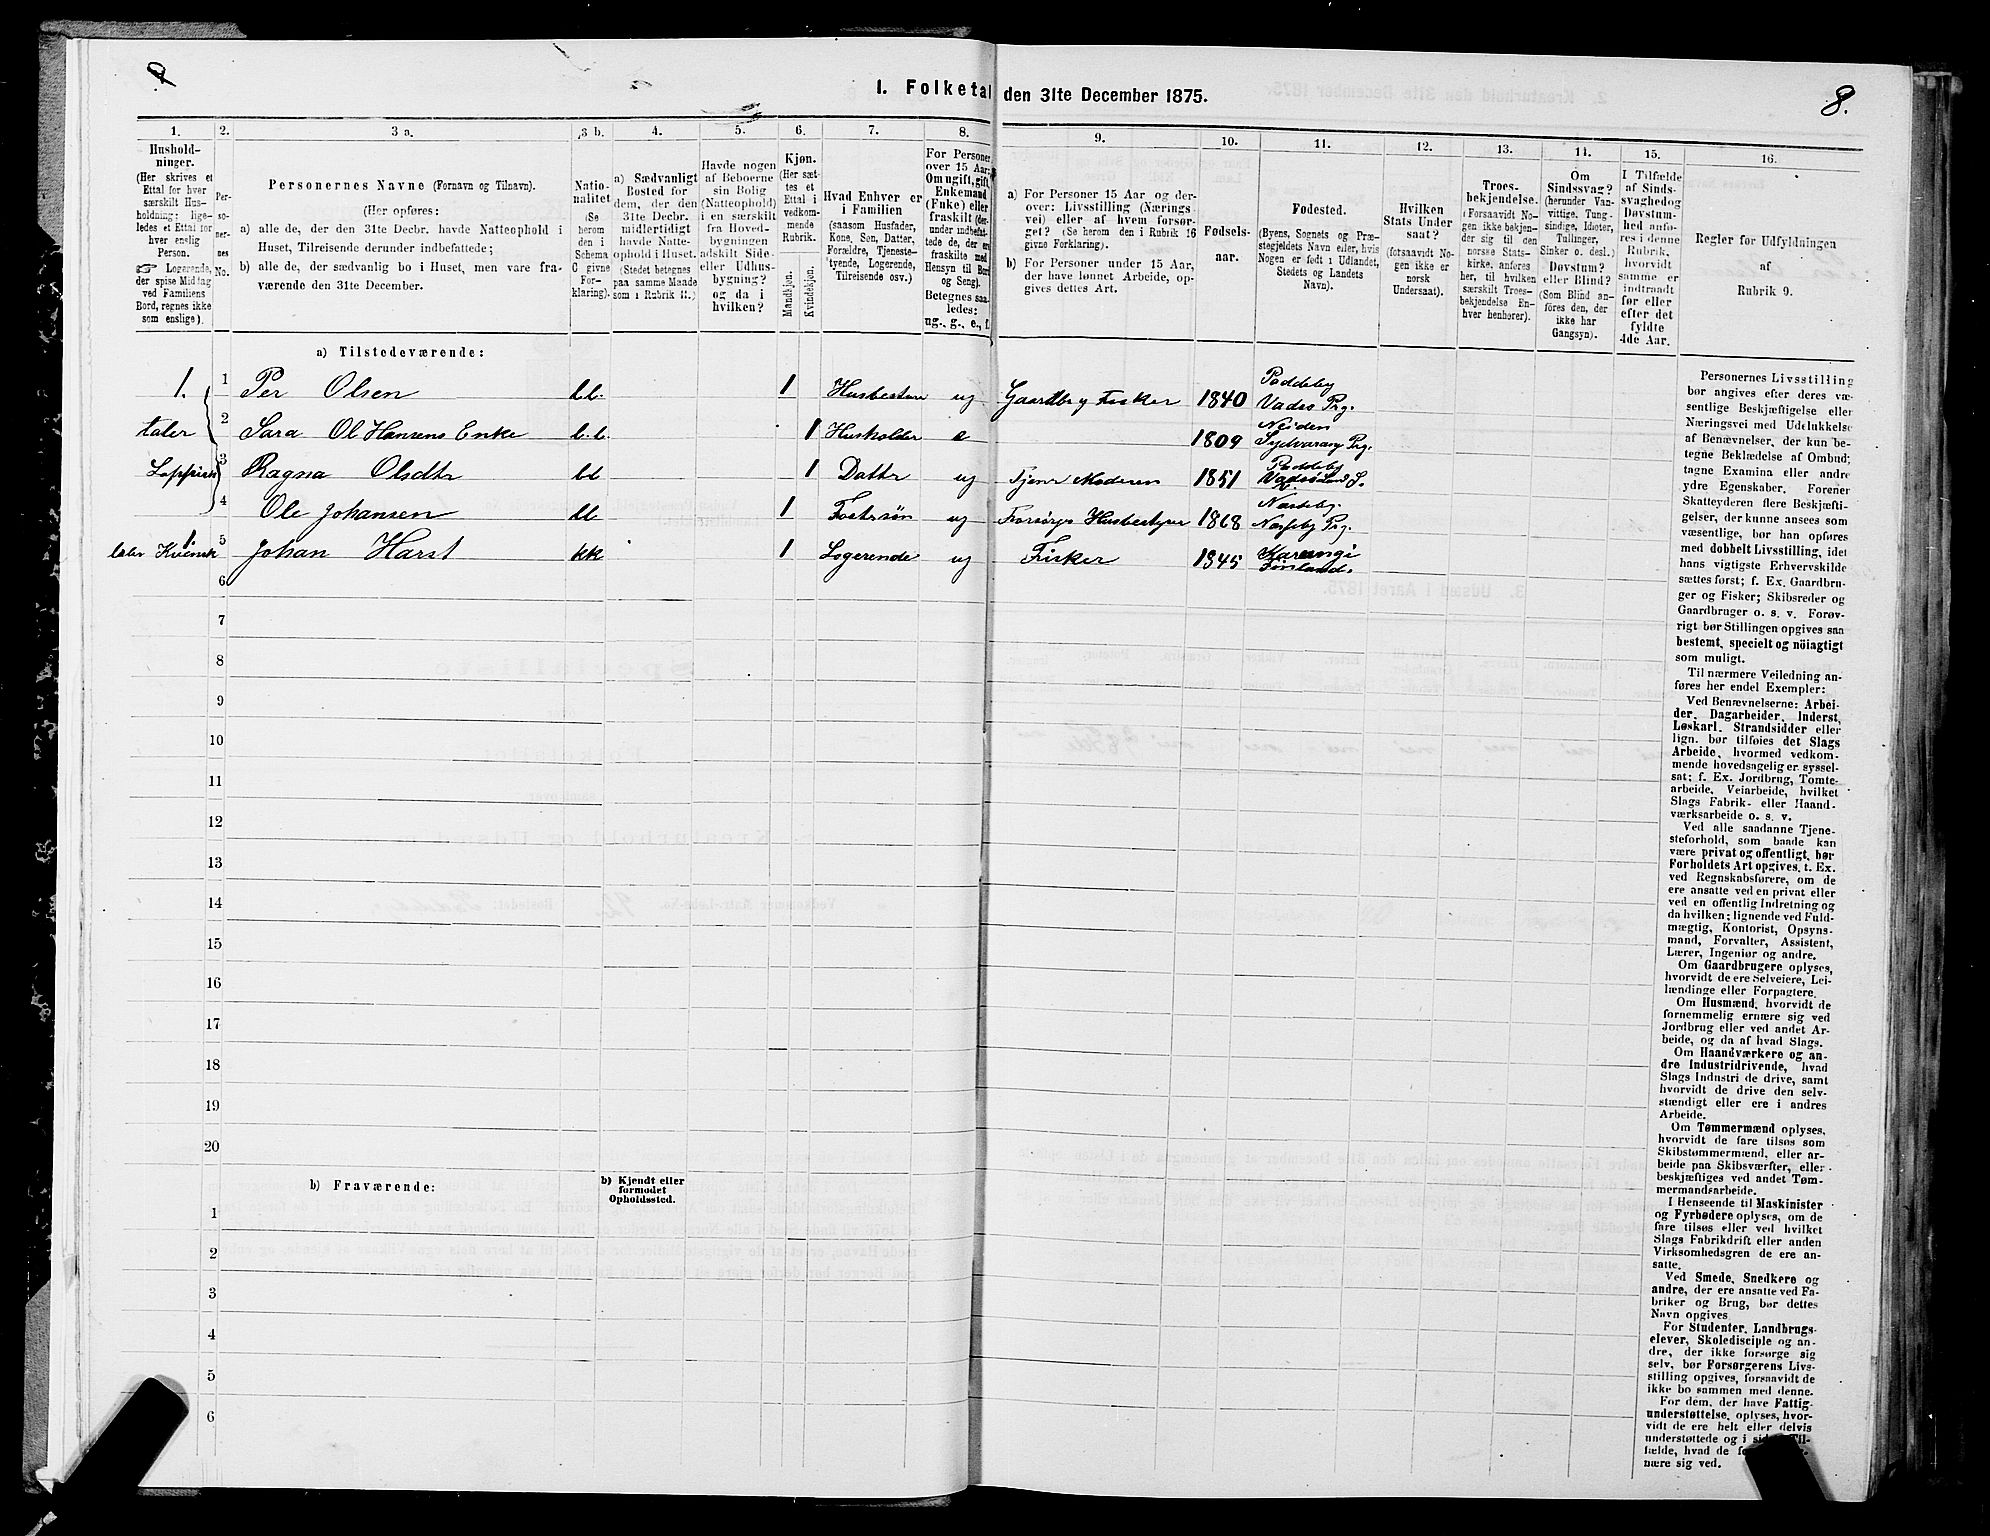 8.
1. Folketal den 31te December 1875.
1.
2.
3 a.
3 b.
4.
5.
6.
7.
8.
9.
10.
11.
12.
13.
14.
15.
16.
Hushold-
ninger.
(Her skrives et
Ettal for hver
særskilt Hus-
holdning; lige-
ledes et Ettal for
hver enslig
Person.
☞ Logerende,
der spise Middag
ved Familiens
Bord, regnes ikke
som enslige).
Per-
so-
ner-
nes
No.
Personernes Navne (Fornavn og Tilnavn).
(Her opføres:
a) alle de, der den 31te Decbr. havde Natteophold i
Huset, Tilreisende derunder indbefattede;
b) alle de, der sædvanlig bo i Huset, men vare fra-
værende den 31te December.
Natio-
nalitet
(Se
herom
den i
Schema
C givne
For-
klaring).
a) Sædvanligt
Bosted for
dem, der den
31te Decbr.
midlertidigt
havde Natte-
ophold i Huset.
(Stedet betegnes
paa samme Maade
som i Rubrik 11.)
Havde nogen
af Beboerne
sin Bolig
(Natteophold)
i en særskilt
fra Hoved-
bygningen
adskilt Side-
eller Udhus-
bygning?
og da i
hvilken?
Kjøn.
(Her sæt-
tes et
Ettal i
vedkom-
mende
Rubrik.
Mandkjøn.
Kvindekjøn.
Hvad Enhver er
i Familien
(saasom Husfader,
Kone, Søn, Datter,
Forældre, Tjeneste-
tyende, Logerende,
Tilreisende osv.)
For Personer
over 15 Aar:
Om ugift, gift,
Enkemand
(Enke) eller
fraskilt (der-
under indbefat-
tede de, der ere
fraskilte med
Hensyn til Bord
og Seng).
Betegnes saa-
ledes:
ug., g., e., f.
a) For Personer 15 Aar og der-
over: Livsstilling (Nærings-
vei) eller af hvem forsør-
get? (Se herom den i Rubrik 16
givne Forklaring).
b) For Personer under 15 Aar,
der have lønnet Arbeide, op-
gives dettes Art.
Fødsels-
aar.
Fødested.
(Byens, Sognets og Præ-
stegjeldets Navn eller, hvis
Nogen er født i Udlandet,
Stedets og Landets
Navn).
Hvilken
Stats Under
saat?
(forsaavidt No-
gen ikke er
norsk
Undersaat).
Troes-
bekjendelse.
(Forsaavidt No-
gen ikke bekjen-
der sig til den
norske Stats-
kirke, anføres
her, til hvilken
særskilt Troes-
bekjendelse En-
hver henhører).
Om
Sindssvag?
(herunder Van-
vittige, Tung-
sindige, Idioter,
Tullinger,
Sinker o. desl.)
Døvstum?
eller Blind?
(Som Blind an-
føres den, der
ikke har
Gangsyn).
I Tilfælde
af Sinds-
svaghed og
Døvstum-
hed anfø-
res i denne
Rubrik,
hvorvidt
samme er
indtraadt
før eller
efter det
fyldte
4de Aar.
Regler for Udfyldningen
af
Rubrik 9.
a) Tilstedeværende:
1. 1 Per Olsen b.b. 1 Husbestyrer ug Gaardbr og Fisker 1840 Paddeby Vadsø Prg.
taler 2 Sara Ol Hansens Enke b.b. 1 Husholder e 1809 Neiden Sydvaranger Prg.
Lappisk 3 Ragna Olsdtr bb 1 Datter ug Tjener Moderen 1851 Paddeby Vadsø Land S.
4 Ole Johansen bb 1 Fostersøn ug Forsørges Husbestyrer 1868 Næsseby. Næsseby Prg.
1 taler Kvensk 5 Johan Harst kk 1 Logerende ug Fisker 1845 Karungi Finland.
6
7
8
9
10
11
12
13
14
15
16
17
18
19
20
b) Fraværende:
b) Kjendt eller
formodet
Opholdssted.
1
2
3
4
5
6
Personernes Livsstilling
bør angives efter deres væ-
sentlige Beskjæftigelse eller
Næringsvei med Udelukkelse
af Benævnelser, der kun be-
tegne Beklædelse af Ombud,
tagne Examina eller andre
ydre Egenskaber. Forener
Skatteyderen flere Beskjæfti-
gelser, der kunne ansees som
væsentlige, bør han opføres
med dobbelt Livsstilling, idet
hans vigtigste Erhvervskilde
sættes først; f. Ex. Gaardbru-
ger og Fisker; Skibsreder og
Gaardbruger o. s. v. Forøv-
rigt bør Stillingen opgives saa
bestemt, specielt og nöiagtigt
som muligt.
Til nærmere Veiledning an-
føres her endel Exempler:
Ved Benævnelserne: Arbei-
der, Dagarbeider, Inderst,
Løskarl, Strandsidder eller
lign. bør tilføies det Slags
Arbeide, hvormed vedkom-
mende hovedsagelig er syssel-
sat; f. Ex. Jordbrug, Tomte-
arbeide, Veiarbeide, hvilket
Slags Fabrik- eller Haand-
værksarbeide o. s. v.
Ved alle saadanne Tjene-
steforhold, som baade kan
være privat og offentligt, bør
Forholdets Art opgives, t. Ex.
ved Regnskabsførere, om de
ere ansatte ved en privat eller
ved en offentlig Indretning og
da hvilken; lignende ved Fuld-
mægtig, Kontorist, Opsyns-
mand, Forvalter, Assistent,
Lærer, Ingeniør og andre.
Om Gaardbrugere oplyses,
hvorvidt de ere Selveiere, Lei-
lændinge eller Forpagtere.
Om Husmænd, hvorvidt de
fornemmelig ernære sig ved
Jordbrug eller ved andet Ar-
beide, og da af hvad Slags.
Om Haandværkere og an-
dre Industridrivende, hvad
Slags Industri de drive, samt
hvorvidt de drive den selv-
stændigt eller ere i andres
Arbeide.
Om Tømmermænd oplyses,
hvorvidt de fare tilsøs som
Skibstømmermænd, eller ar-
beide paa Skibsværfter, eller
beskjæftiges ved andet Tøm-
mermandsarbeide.
I Henseende til Maskinister
og Fyrbødere oplyses, om de
fare tilsøs eller ved hvilket
Slags Fabrikdrift eller anden
Virksomhedsgren de ere an-
satte.
Ved Smede, Snedkere og
andre, der ere ansatte ved Fa-
briker og Brug, bør dettes
Navn opgives
For Studenter, Landbrugs-
elever, Skoledisciple og an-
dre, der ikke forsørge sig
selv, bør Forsørgerens Livs-
stilling opgives, forsaavidt de
ikke bo sammen med denne.
For dem, der have Fattig-
understøttelse, oplyses, hvor-
vidt de ere helt eller delvis
understøttede og i sidste Til-
fælde, hvad de
nære sig ved.